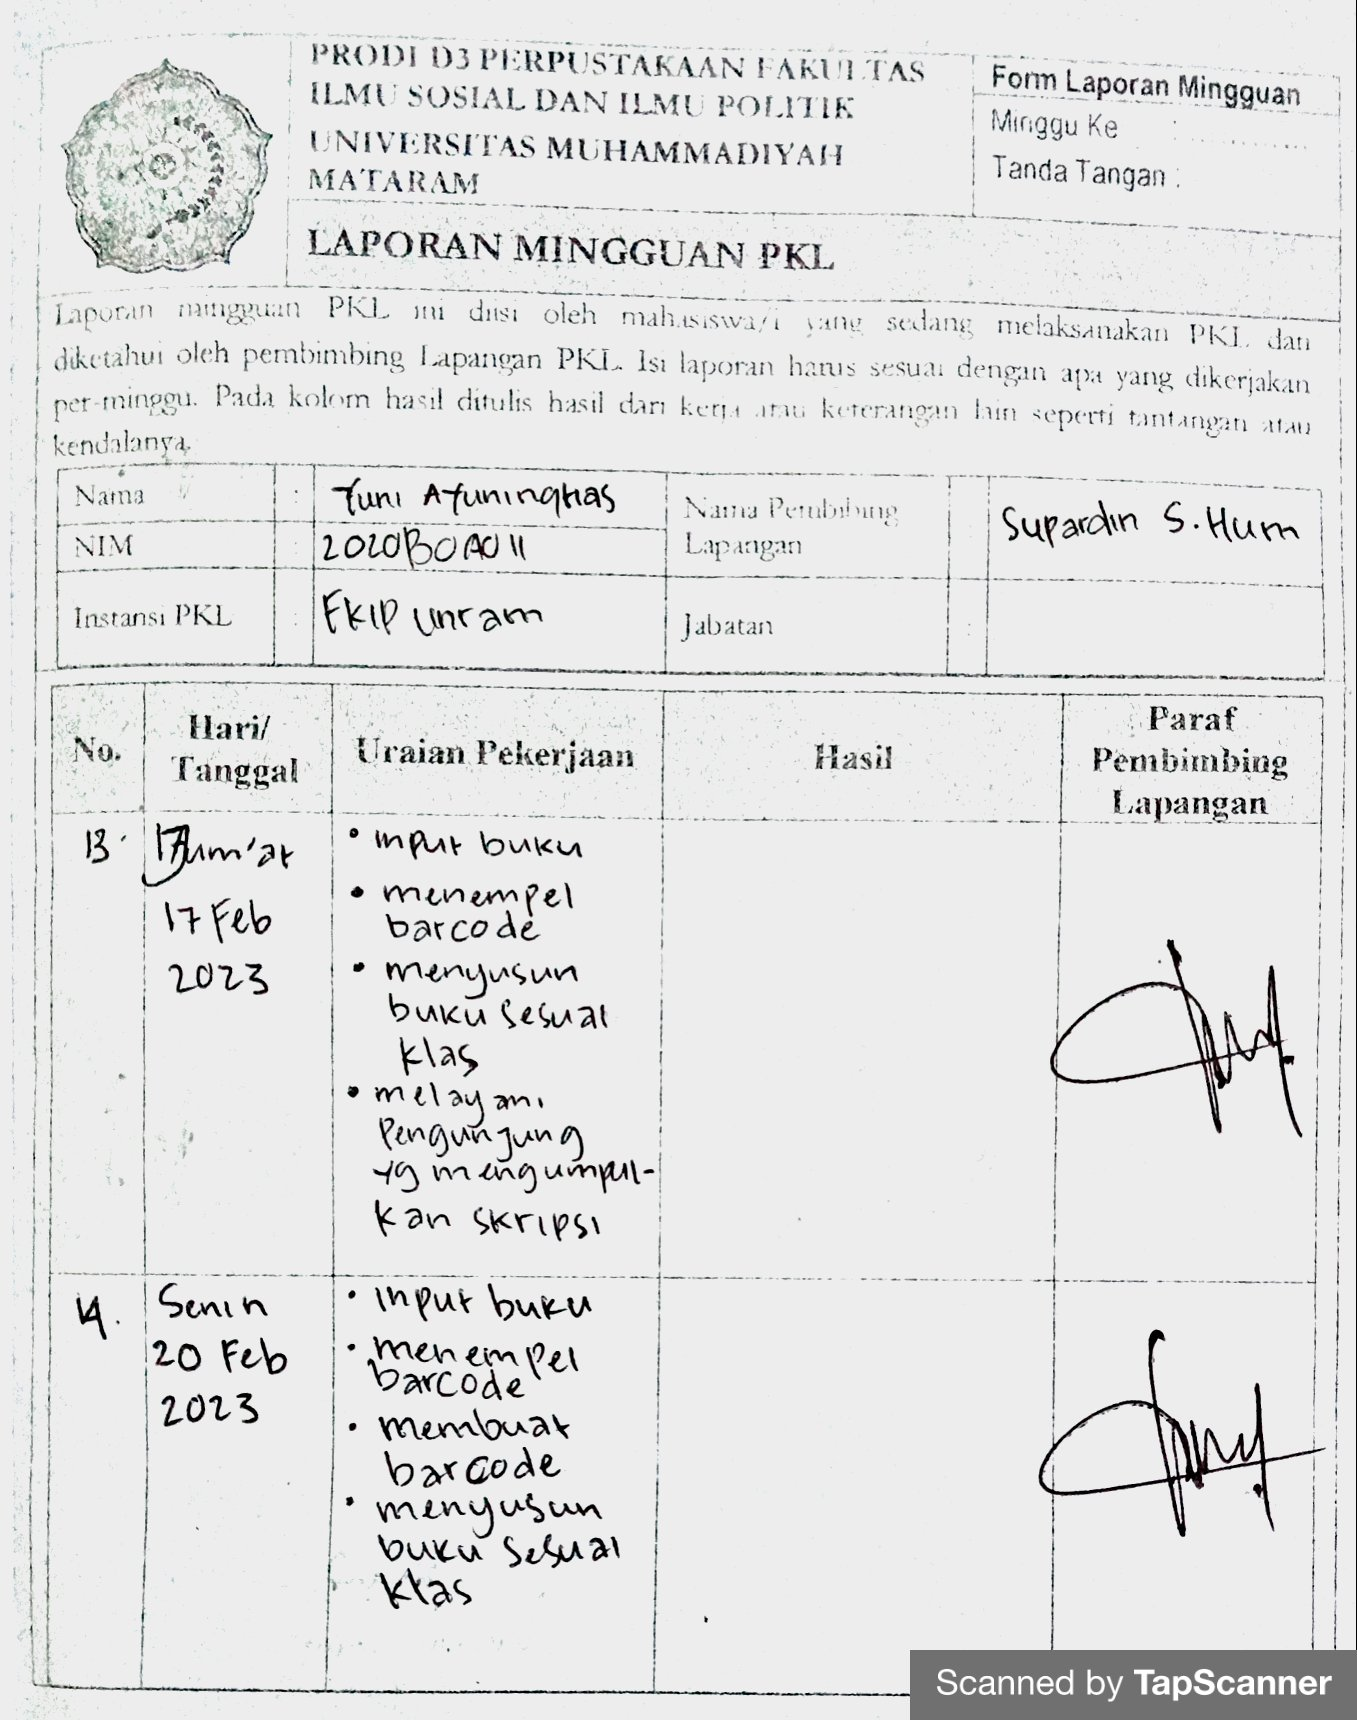 PRODI D3 PERPUSTAKAAN FAKULTAS
ILMU SOSIAL DAN ILMU POLITIK
UNIVERSITAS MUHAMMADIYAH
MATARAM
LAPORAN MINGGUAN PKL
Form Laporan Mingguan
Minggu Ke : ..............
Tanda Tangan :
Laporan mingguan PKL ini diisi oleh mahasiswa/i yang sedang melaksanakan PKL dan
diketahui oleh pembimbing Lapangan PKL. Isi laporan harus sesuai dengan apa yang dikerjakan
per-minggu. Pada kolom hasil ditulis hasil dari kerja atau keterangan lain seperti tantangan atau
kendalanya.
Nama : Yuni Ayuningtias
NIM : 2020B0A011
Instansi PKL : FKIP Unram
Nama Pembibing
Lapangan : Supardin S.Hum
Jabatan :
No. Hari/ Tanggal Uraian Pekerjaan Hasil Paraf Pembimbing Lapangan
13. Jum'at
17 Feb
2023
• input buku
• menempel
barcode
• menyusun
buku sesuai
klas
• melayani
Pengunjung
yg mengumpul-
kan skripsi
14. Senin
20 Feb
2023
• input buku
• menempel
barcode
• membuat
barcode
• menyusun
buku sesuai
klas
Scanned by TapScanner